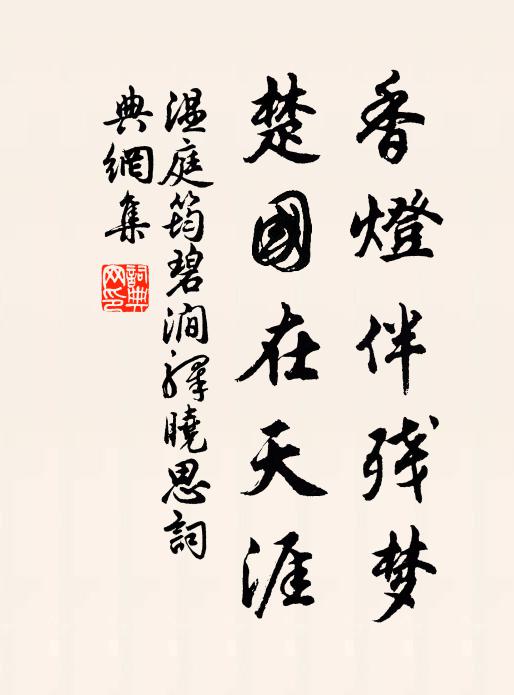 香燈伴残梦
楚國在天涯
温庭筠碧澗驛曉思詞
典網集
詞典網印